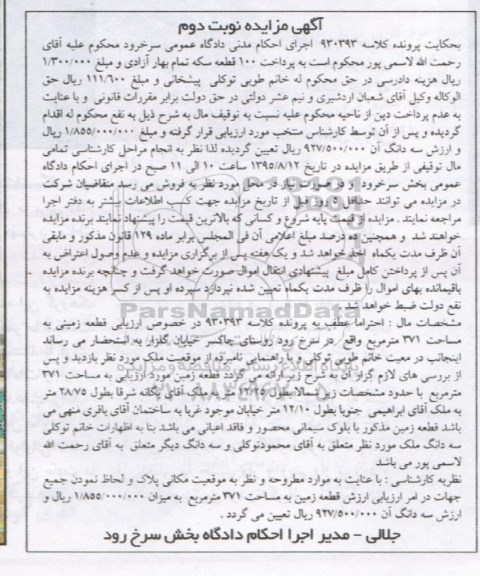 آگهی مزایده نوبت دوم
بحکایت پرونده کلاسه ۹۳۰۳۹۳ اجرای احکام مدنی دادگاه عمومی سرخرود محکوم علیه آقای
رحمت الله لاسمی پور محکوم است به پرداخت ۱۰۰ قطعه سکه تمام بهار آزادی و مبلغ ۱/۳۰۰/۰۰۰
ریال هزینه دادرسی در حق محکوم له خانم طوبی توکلی پیشخانی و مبلغ ۱۱۱/۶۰۰ ریال حق
الوکاله وکیل آقای شعبان اردشیری و نیم عشر دولتی در حق دولت برابر مقررات قانونی و با عنایت
به عدم پرداخت دین از ناحیه محکوم علیه نسبت به توقیف مال به شرح ذیل به نفع محکوم له اقدام
گردیده و پس از آن توسط کارشناس منتخب مورد ارزیابی قرار گرفته و مبلغ ۱/۸۵۵/۰۰۰/۰۰۰ ریال
و ارزش سه دانگ آن ۹۲۷/۵۰۰/۰۰۰ ریال تعیین گردیده لذا نظر به انجام مراحل کارشناسی تمامی
مال توقیفی از طریق مزایده در تاریخ ۱۳۹۵/۸/۱۲ ساعت ۱۰ الی ۱۱ صبح در اجرای احکام دادگاه
عمومی بخش سرخرود و در صورت نیاز در محل مورد نظر به فروش می رسد متقاضیان شرکت
در مزایده می توانند حداقل ۵ روز قبل از تاریخ مزایده جهت کسب اطلاعات بیشتر به دفتر اجرا
مراجعه نمایند . مزایده از قیمت پایه شروع و کسانی که بالاترین قیمت را پیشنهاد نمایند برنده مزایده
خواهند شد و همچنین ده درصد مبلغ اعلامی آن فی المجلس برابر ماده ۱۲۹ قانون مذکور و مابقی
آن ظرف مدت یکماه اخذ خواهد شد و یک هفته پس از برگزاری مزایده و عدم وصول اعتراض به
آن پس از پرداختن کامل مبلغ پیشنهادی انتقال اموال صورت خواهد گرفت و چنانچه برنده مزایده
باقیمانده بهای اموال را ظرف مدت یکماه تعیین شده نپردازد سپرده او پس از کسر هزینه مزایده به
نفع دولت ضبط خواهد شد .
مشخصات مال : احتراما عطف به پرونده کلاسه ۹۳۰۳۹۳ در خصوص ارزیابی قطعه زمینی به
مساحت ۳۷۱ مترمربع واقع در سرخ رود روستای چاکسر خیابان گلزار به استحضار می رساند
اینجانب در معیت خانم طوبی توکلی و با راهنمایی نامبرده از موقعیت ملک مورد نظر بازدید و پس
از بررسی های لازم گزارش آن به شرح زیر ارائه می گردد قطعه زمین مورد ارزیابی به مساحت ۳۷۱
مترمربع با حدود مشخصات زیر شمالا بطول ۱۳/۲۵ متر به ملک آقای یگانه شرقا بطول ۲۸/۷۵ متر
به ملک آقای ابراهیمی جنوبا بطول ۱۲/۱۰ متر خیابان موجود غربا به ساختمان آقای باقری منهی می
باشد قطعه زمین مذکور با بلوک سیمانی محصور و فاقد اعیانی می باشد بنا به اظهارات خانم توکلی
سه دانگ ملک مورد نظر متعلق به آقای محمودتوکلی و سه دانگ دیگر متعلق به آقای رحمت الله
لاسمی پور می باشد
نظریه کارشناسی : با عنایت به موارد مطروحه و نظر به موقعیت مکانی پلاک و لحاظ نمودن جمیع
جهات در امر ارزیابی ارزش قطعه زمین به مساحت ۳۷۱ مترمربع به میزان ۱/۸۵۵/۰۰۰/۰۰۰ ریال و
ارزش سه دانگ آن ۹۲۷/۵۰۰/۰۰۰ ریال تعیین می گردد .
جلالی - مدیر اجرا احکام دادگاه بخش سرخ رود
ParsNamadData